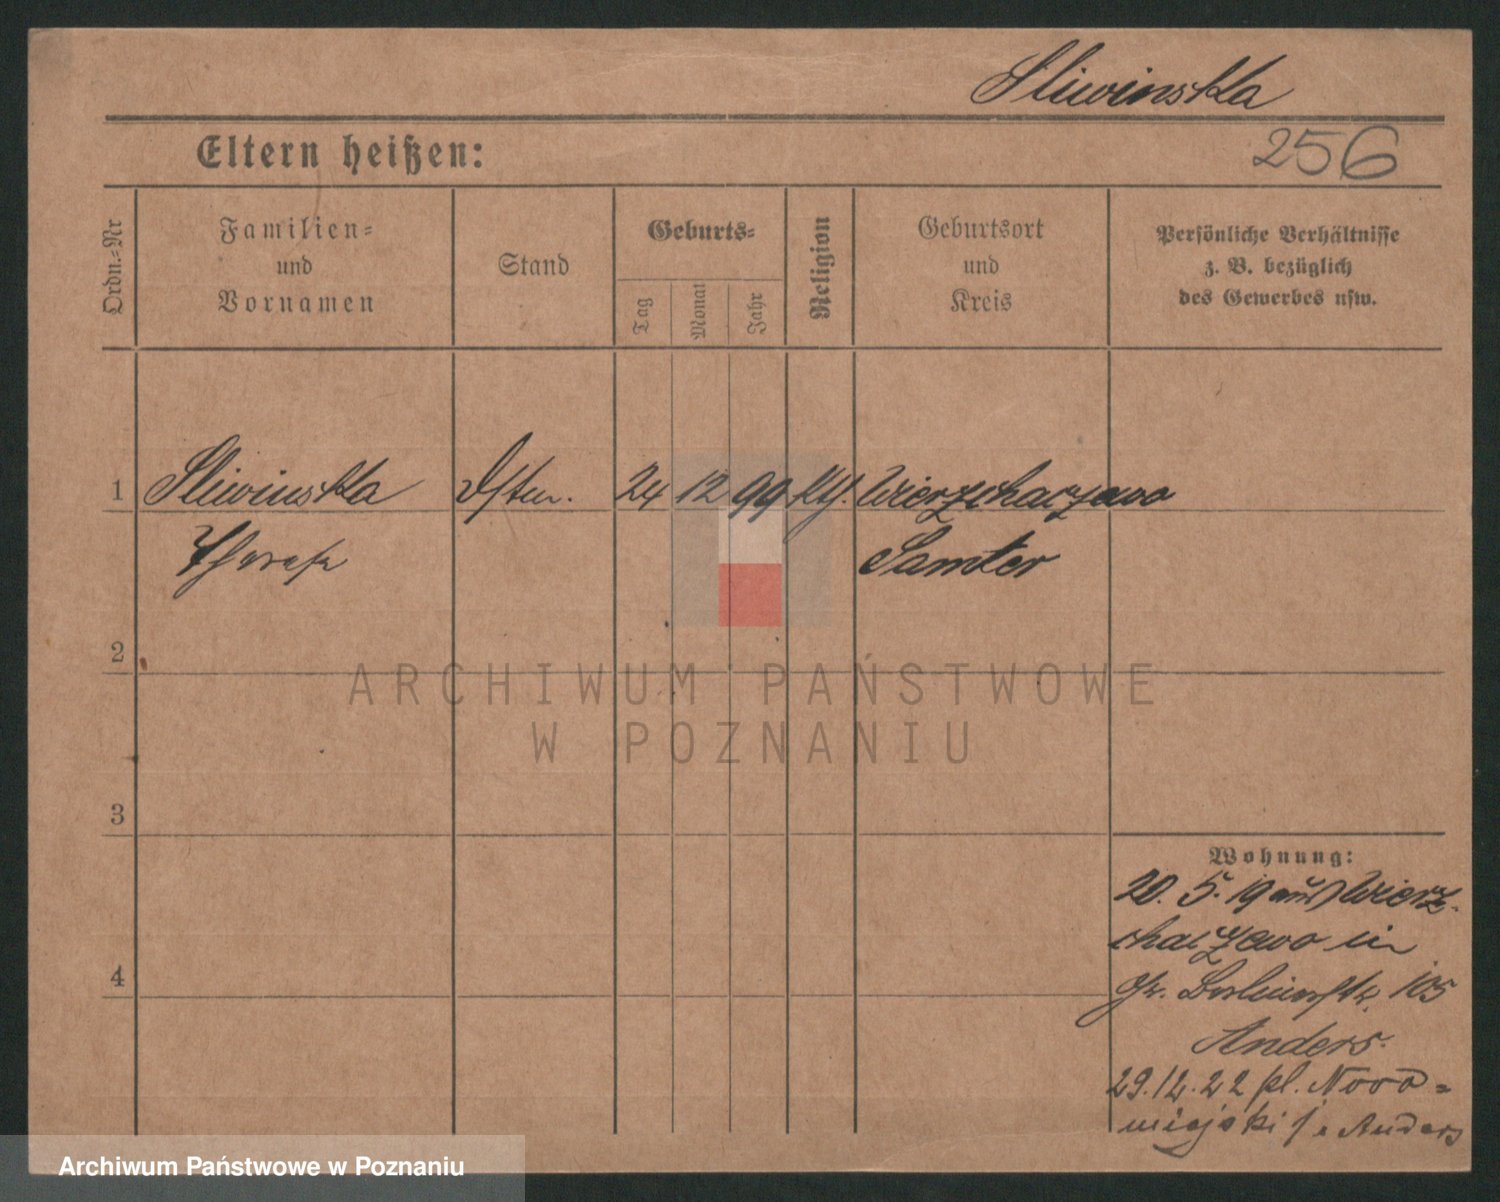 Sliwinska
Eltern heißen:
256
Ordn.-Nr
Familien-
und
Vornamen
Stand
Geburts-
Tag
Monat
Jahr
Religion
Geburtsort
und
Kreis
Persönliche Verhältnisse
z. B. bezüglich
des Gewerbes usw.
1 Sliwinska 24 12 99 Wierzchaczewo
Samter
2
3
4
ARCHIWUM PAŃSTWOWE
W POZNANIU
Wohnung:
20. 5. 19 aus Wierz-
chaczewo in
Gr. Berlinerstr. 105
Anders.
29.12.22 pl. Nowo-
miejski Anders
Archiwum Państwowe w Poznaniu